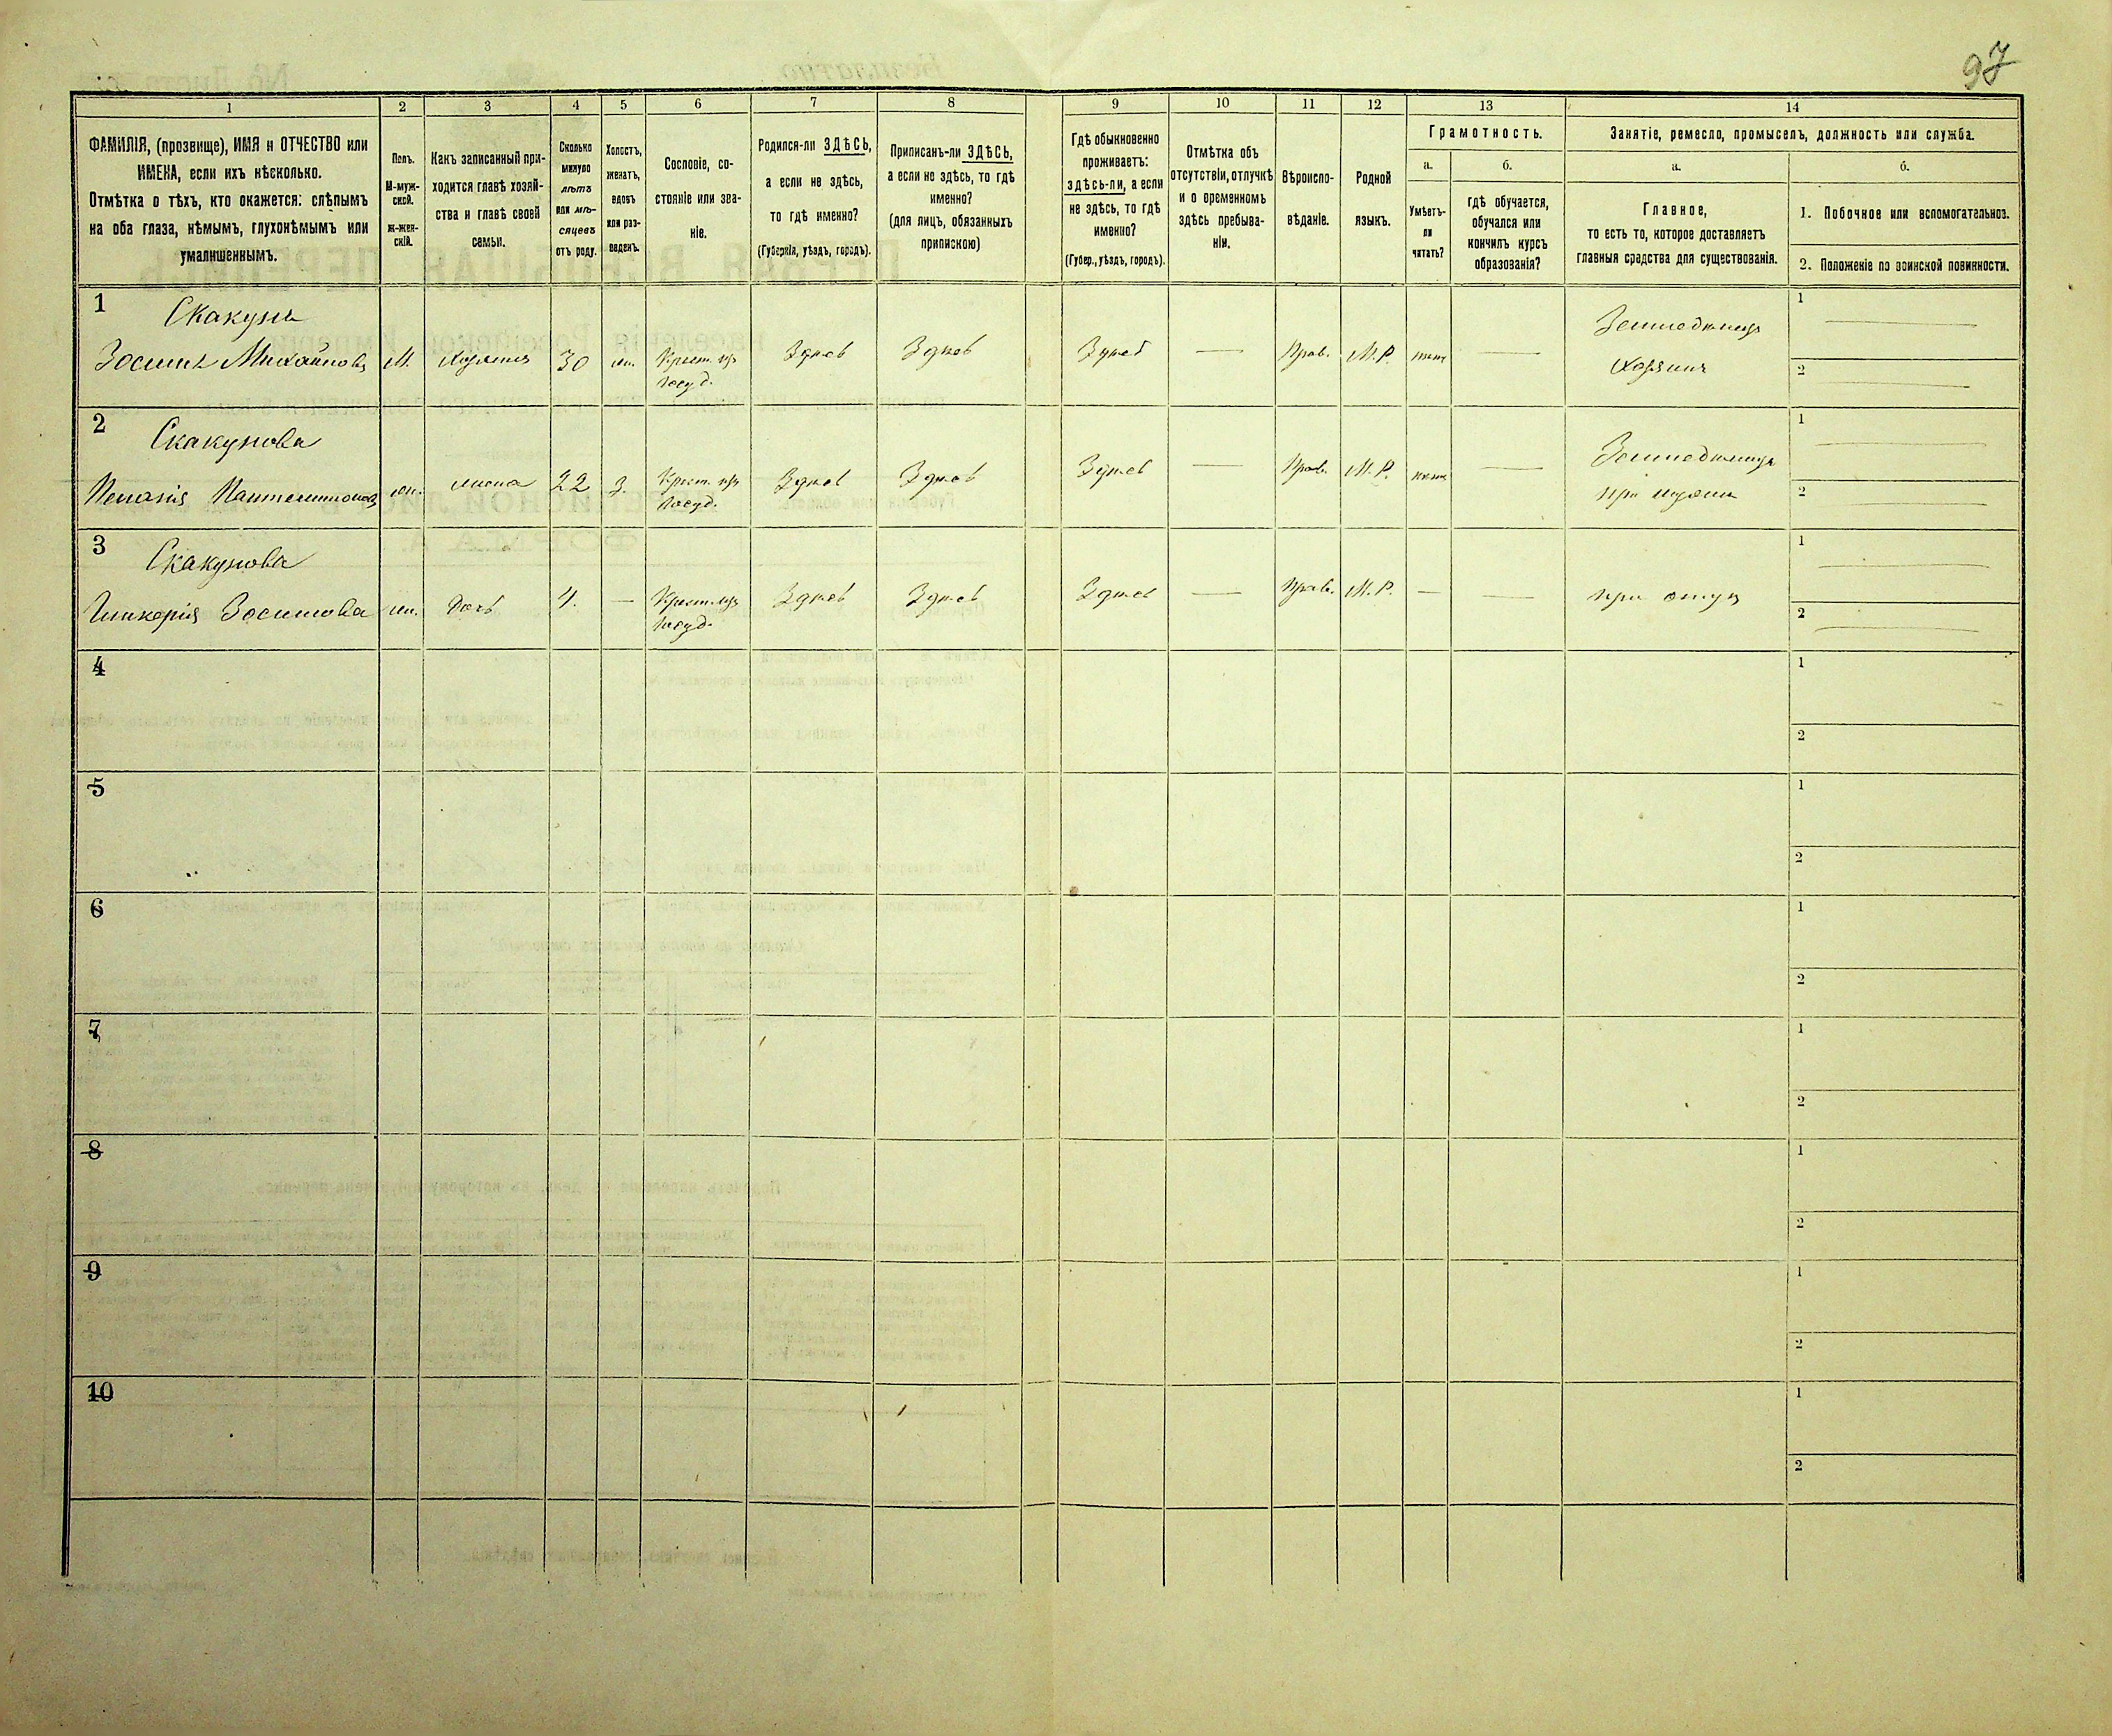 97
1
2
3
4
5
6
7
8
9
10
11
12
13
14
ФАМИЛІЯ, (прозвище), ИМЯ и ОТЧЕСТВО или
ИМЕНА, если ихъ нѣсколько.
Отмѣтка о тѣхъ, кто окажется: слѣпымъ
на оба глаза, нѣмымъ, глухонѣмымъ или
умалишеннымъ.
Полъ.
М-муж-
ской.
ж-жен-
скій.
Какъ записанный при-
ходится главѣ хозяй-
ства и главѣ своей
семьи.
Сколько
минуло
лѣтъ
или мѣ-
сяцевъ
отъ роду.
Холостъ,
женатъ,
вдовъ
или раз-
веденъ.
Сословіе, со-
стояніе или зва-
ніе.
Родился-ли ЗДѢСЬ,
а если не здѣсь,
то гдѣ именно?
(Губернія, уѣздъ, городъ).
Приписанъ-ли ЗДѢСЬ,
а если не здѣсь, то гдѣ
именно?
(для лицъ, обязанныхъ
припискою)
Гдѣ обыкновенно
проживаетъ:
здѣсь-ли, а если
не здѣсь, то гдѣ
именно?
(Губер., уѣздъ, городъ).
Отмѣтка объ
отсутствіи, отлучкѣ
и о временномъ
здѣсь пребыва-
ніи.
Вѣроиспо-
вѣданіе.
Родной
языкъ.
Грамотность.
а.
Умѣетъ-
ли
читать?
б.
гдѣ обучается,
обучался или
кончилъ курсъ
образованія?
Занятіе, ремесло, промыселъ, должность или служба.
а.
Главное,
то есть то, которое доставляетъ
главныя средства для существованія.
б.
1. Побочное или вспомогательное.
2. Положеніе по воинской повинности.
1
Скакунъ
Зосимъ Михайловъ
М.
Хозяинъ
30
жн.
Крест. изъ
госуд.
Здѣсь
Здѣсь
Здѣсь
—
Прав.
М.Р.
нѣтъ
—
Земледѣлецъ
Хозяинъ
1
2
2
Скакунова
Меланія Пантелимонова
жн.
жена
22
з.
Крест. изъ
госуд.
Здѣсь
Здѣсь
Здѣсь
—
Прав.
М.Р.
нѣтъ
—
Земледѣлецъ
при мужѣ
1
2
3
Скакунова
Гликерія Зосимова
жн.
дочь
4.
—
Крест. изъ
госуд.
Здѣсь
Здѣсь
Здѣсь
—
Прав.
М.Р.
—
—
при отцѣ
1
2
4
1
2
5
1
2
6
1
2
7
1
2
8
1
2
9
1
2
10
1
2